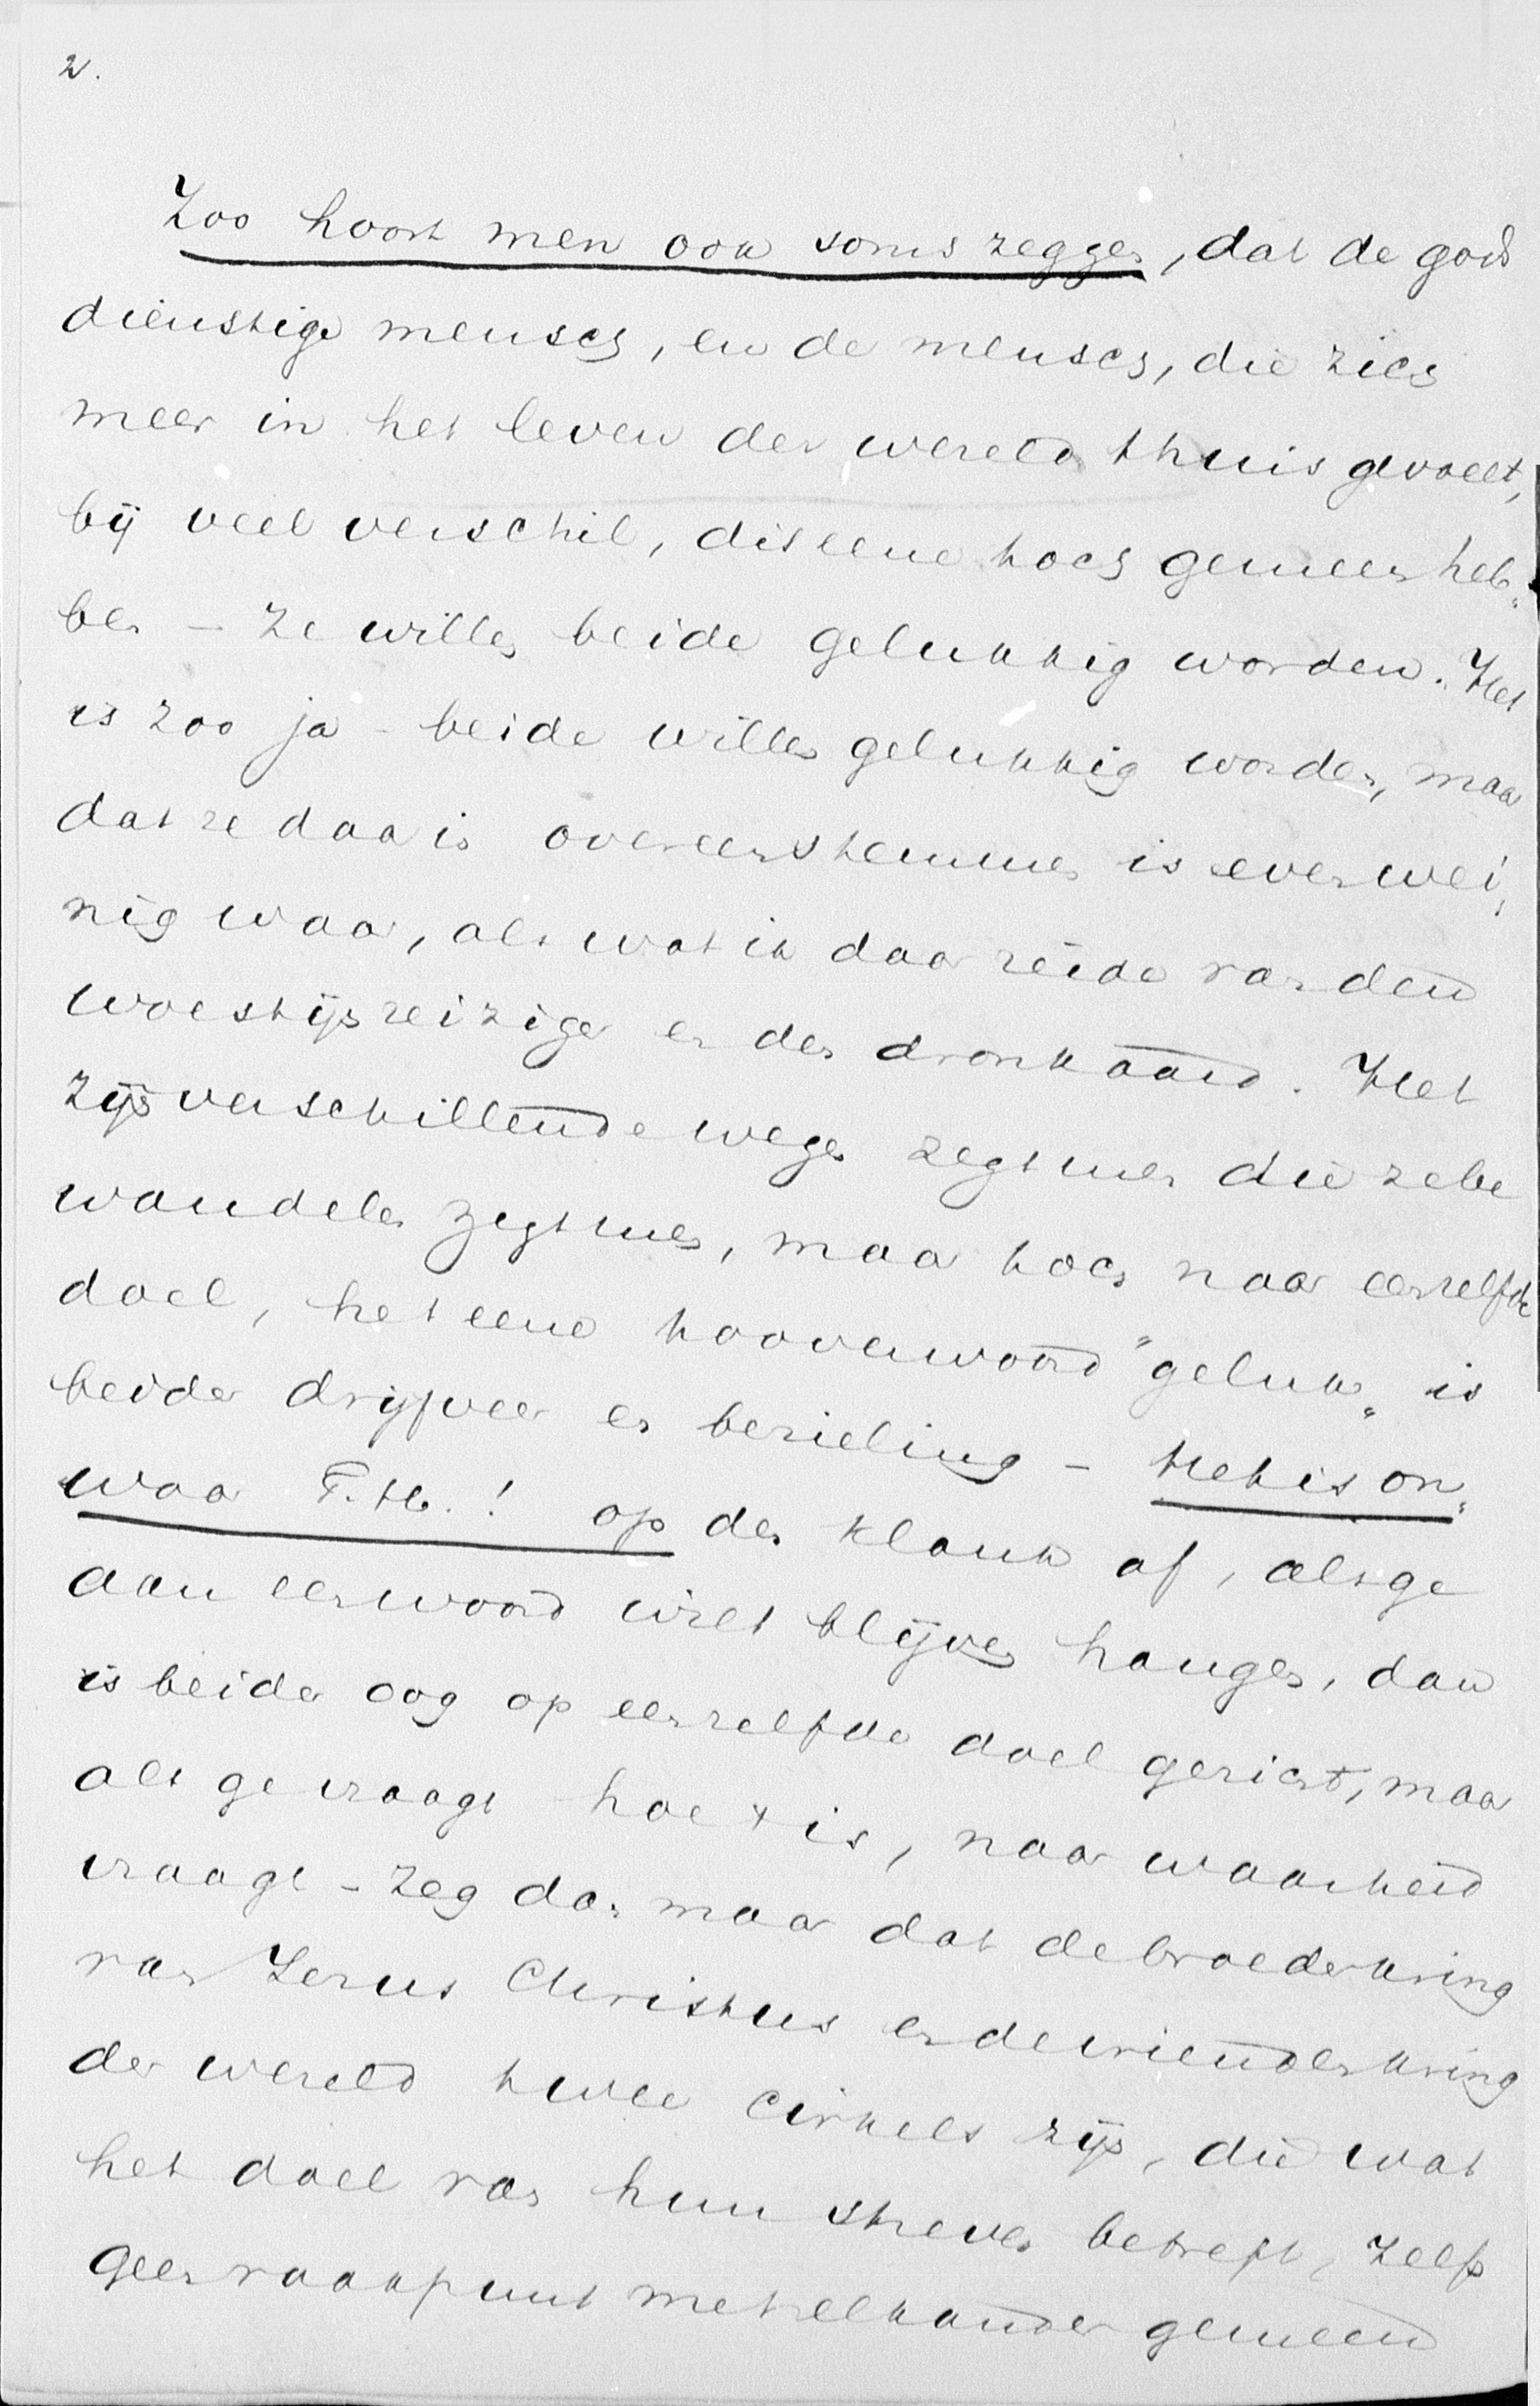 2.
Zoo hoort men ook soms zeggen, dat de gods
dienstige mensch, en de mensch, die zich
meer in het leven der wereld thuis gevoelt,
bij veel verschil, dit eene toch gemeen heb„
ben – ze willen beide gelukkig worden. Het
is zoo ja – beide willen gelukkig worden, maar
dat ze daarin overeenstemmen is even wei„
nig waar, als wat ik daar zeide van den
woestijnreiziger en den dronkaard. Het
zijn verschillende wegen zegt men die ze be
wandelen zegt men, maar toch naar eenzelfde
doel, het eene tooverwoord "geluk„ is
beider drijfveer en bezieling – Het is on„
waar T. H.! op den klank af, als ge
aan een woord wilt blijven hangen, dan
is beider oog op eenzelfde doel gericht, maar
als ge vraagt hoe 't is, naar waarheid
vraagt – zeg dan maar dat de broederkring
van Jezus Christus en de vriendenkring
der wereld twee cirkels zijn, die wat
het doel van hun streven betreft, zelfs
geen raakpunt met elkander gemeen